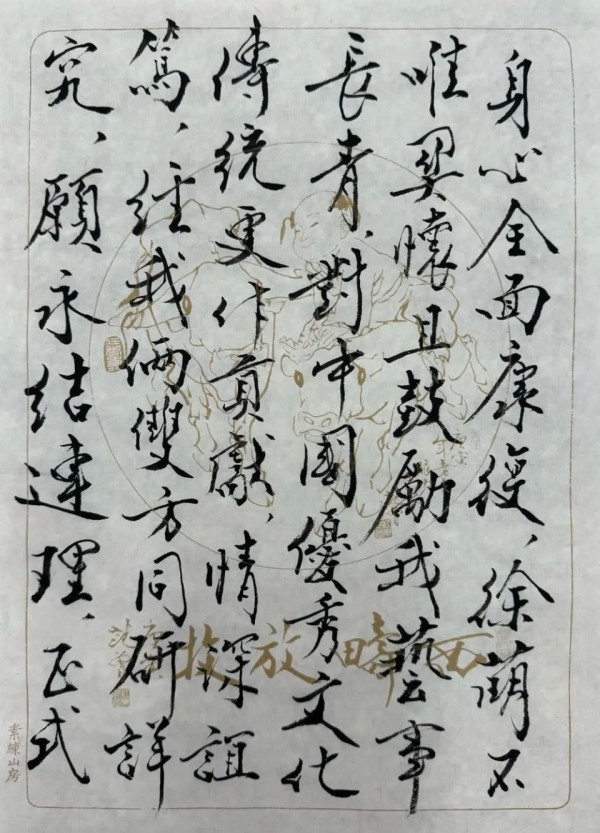 身心全面康復、徐萌不
唯畀懷且鼓勵我藝事
長青、對中國優秀文化
傳統更作貢獻、情深誼
篤、經我倆雙方同研詳
究、願永結連理、正式
西疇放牧
素練山房